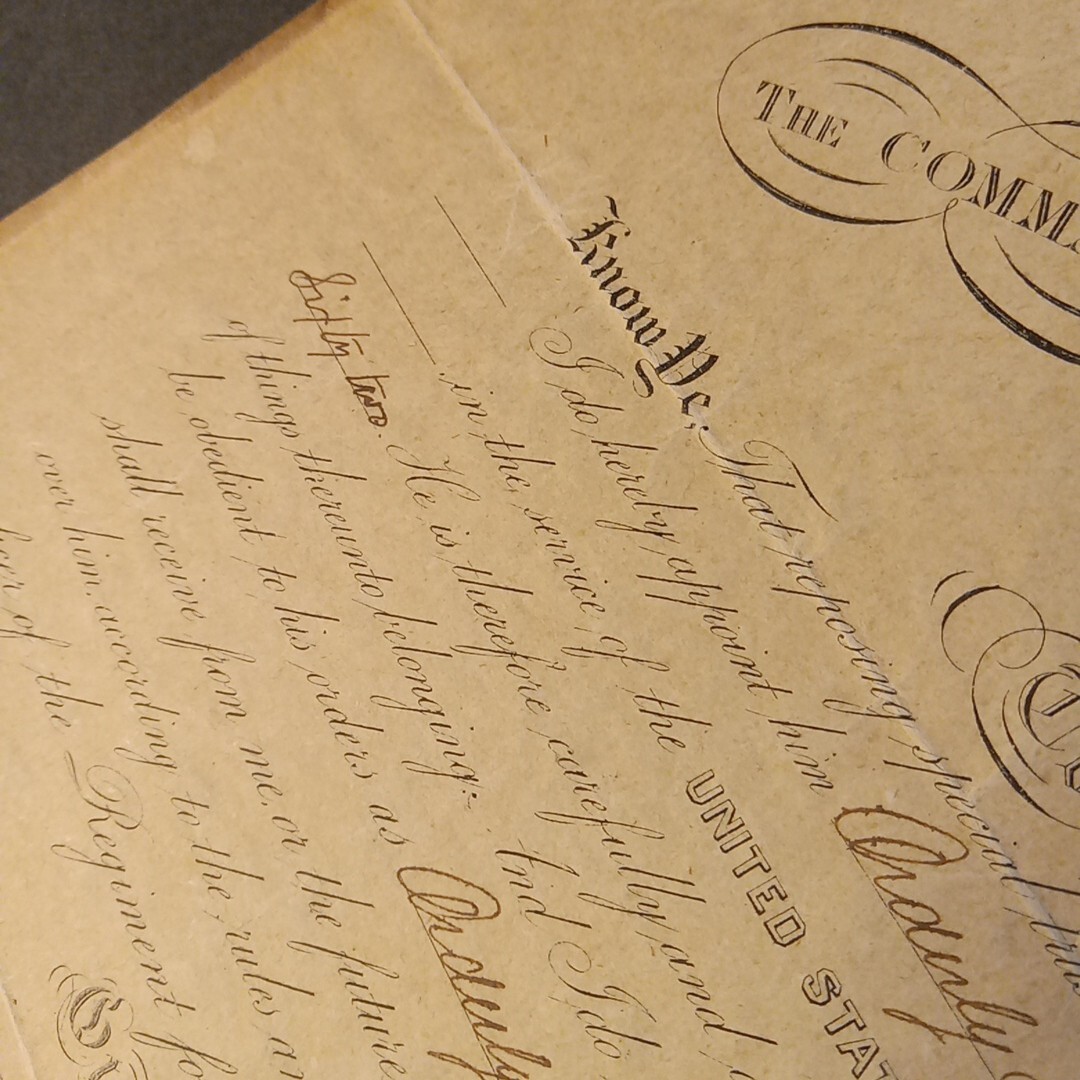 THE COMM
Know Ye, That reposing special
I do hereby appoint him Orderly
in the service of the UNITED STAT
Sixty two. He is therefore carefully and
of things thereunto belonging: And I do
be obedient to his orders as Orderly
shall receive from me, or the future
over him, according to the rules an
of the Regiment fo